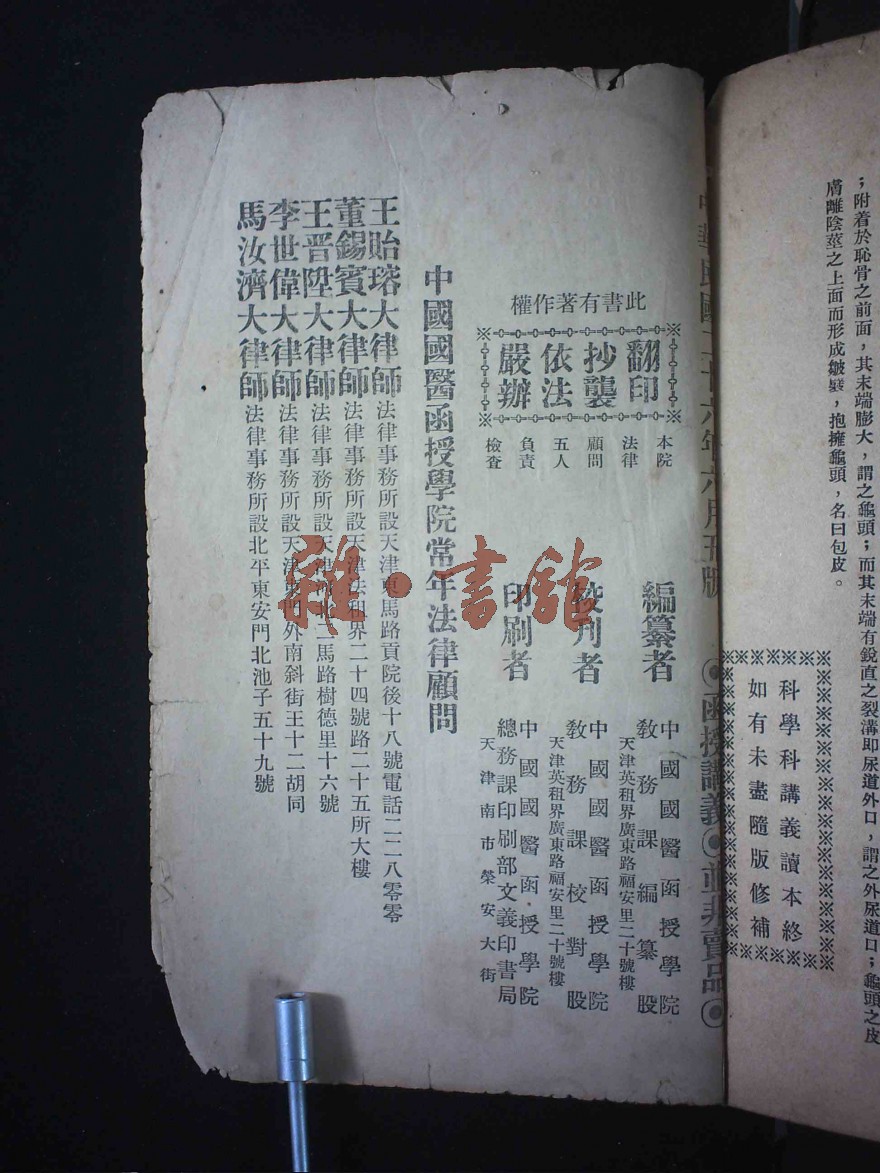 ；附着於恥骨之前面，其末端膨大，謂之龜頭；而其末端有銳直之裂溝即尿道外口，謂之外尿道口；龜頭之皮
膚離陰莖之上面而形成皺襞，抱擁龜頭，名曰包皮。
科學科講義讀本終
如有未盡隨版修補
中華民國二十六年六月五版
◉函授講義◉並非賣品◉
此書有著作權
翻印
抄襲
依法
嚴辦
本院
法律
顧問
五人
負責
檢查
編纂者
中國國醫函授學院
教務課編纂股
天津英租界廣東路福安里二十號樓
校刊者
中國國醫函授學院
教務課校對股
天津英租界廣東路福安里二十號樓
印刷者
中國國醫函授學院
總務課印刷部文義印書局
天津南市榮安大街
中國國醫函授學院常年法律顧問
王貽瑢大律師法律事務所設天津東馬路貢院後十八號電話二二八零零
董錫賓大律師法律事務所設天津法租界二十四號路二十五所大樓
王晋陞大律師法律事務所設天津二馬路樹德里十六號
李世偉大律師法律事務所設天津東門外南斜街王十二胡同
馬汝濟大律師法律事務所設北平東安門北池子五十九號
雜·書館